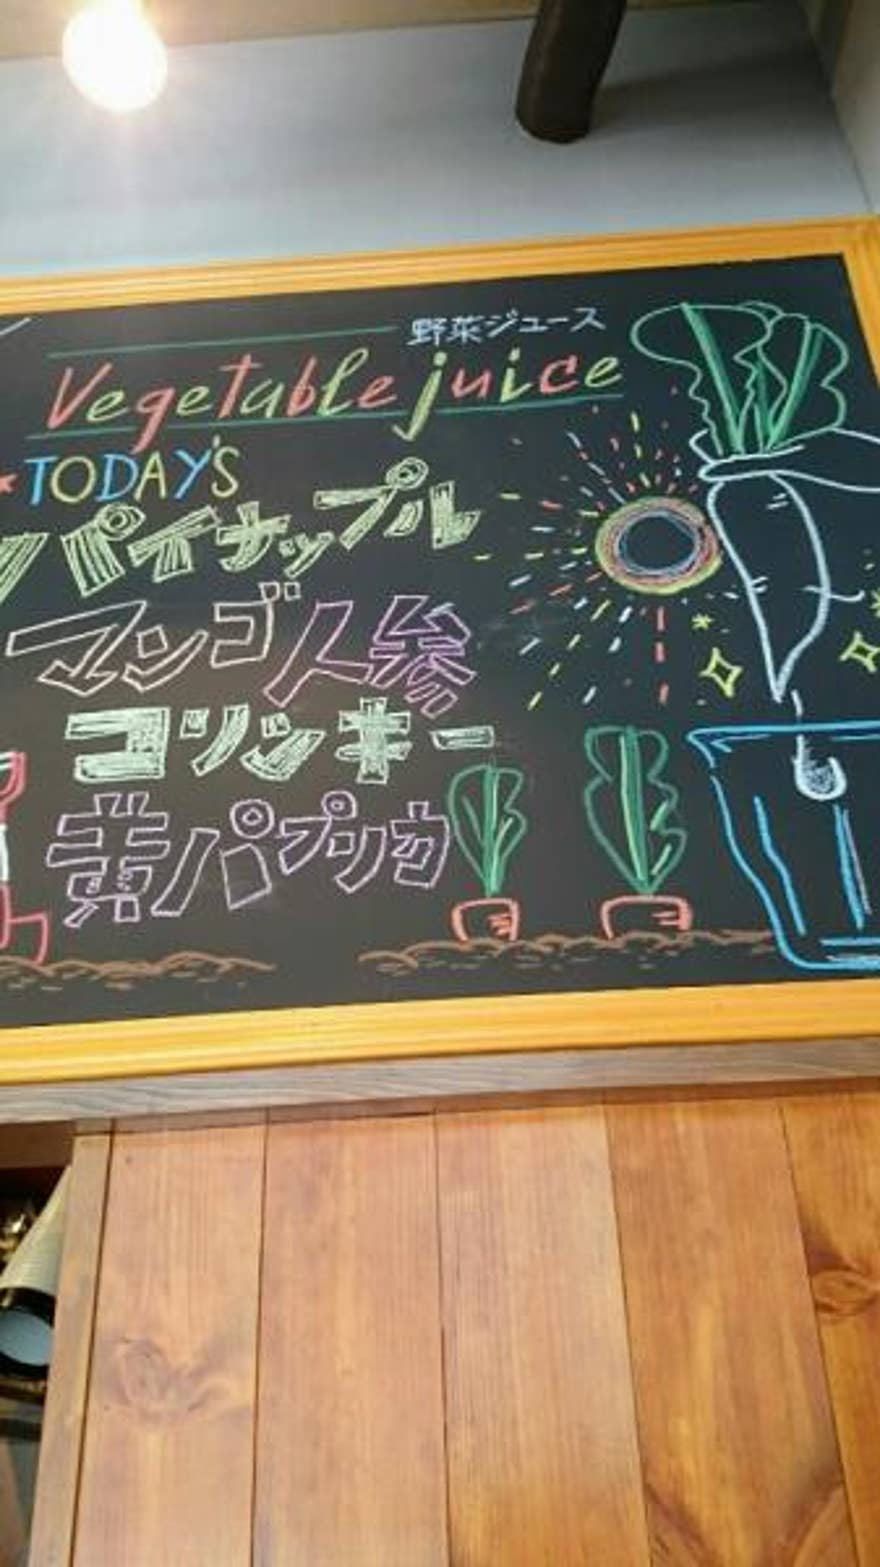 野菜ジュース
Vegetable juice
TODAY'S
パイナップル
マンゴ人参
コリンキー
黄パプリカ